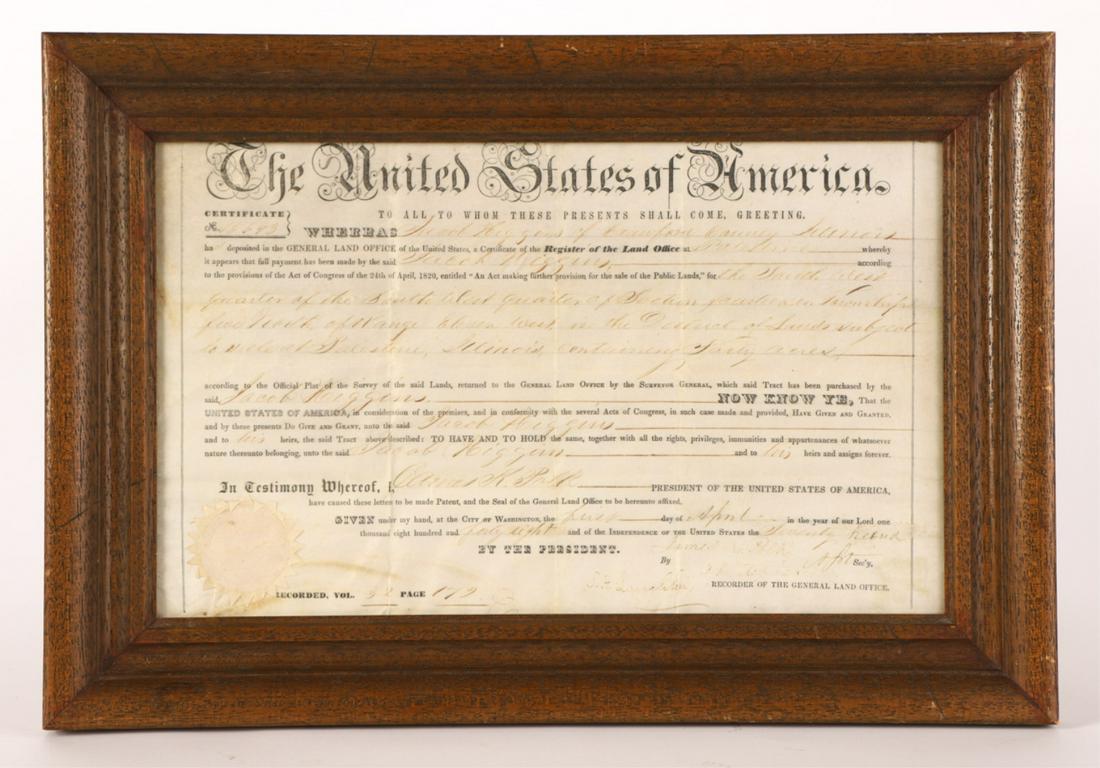 The United States of America.
CERTIFICATE
No.
TO ALL TO WHOM THESE PRESENTS SHALL COME, GREETING.
WHEREAS Jacob Higgins of Crawford County Illinois
ha deposited in the GENERAL LAND OFFICE of the United States, a Certificate of the Register of the Land Office at whereby
it appears that full payment has been made by the said Jacob Higgins according
to the provisions of the Act of Congress of the 24th of April, 1820, entitled "An Act making further provision for the sale of the Public Lands," for the South West
quarter of the South West quarter of Section fourteen in Township
five North of Range Eleven West in the District of Lands subject
to sale at Palestine, Illinois, containing Forty acres
according to the Official Plat of the Survey of the said Lands, returned to the GENERAL LAND OFFICE by the SURVEYOR GENERAL, which said Tract has been purchased by the
said, Jacob Higgins NOW KNOW YE, That the
UNITED STATES OF AMERICA, in consideration of the premises, and in conformity with the several Acts of Congress, in such case made and provided, HAVE GIVEN AND GRANTED,
and by these presents DO GIVE AND GRANT, unto the said Jacob Higgins
and to his heirs, the said Tract above described: TO HAVE AND TO HOLD the same, together with all the rights, privileges, immunities and appurtenances of whatsoever
nature thereunto belonging, unto the said Jacob Higgins and to his heirs and assigns forever.
In Testimony Whereof, I, James K. Polk PRESIDENT OF THE UNITED STATES OF AMERICA,
have caused these letters to be made Patent, and the Seal of the General Land Office to be hereunto affixed.
GIVEN under my hand, at the CITY OF WASHINGTON, the first day of April in the year of our Lord one
thousand eight hundred and forty eight and of the INDEPENDENCE OF THE UNITED STATES the Seventy second
BY THE PRESIDENT. James K. Polk
By Sec'y,
RECORDER OF THE GENERAL LAND OFFICE.
RECORDED, VOL. PAGE